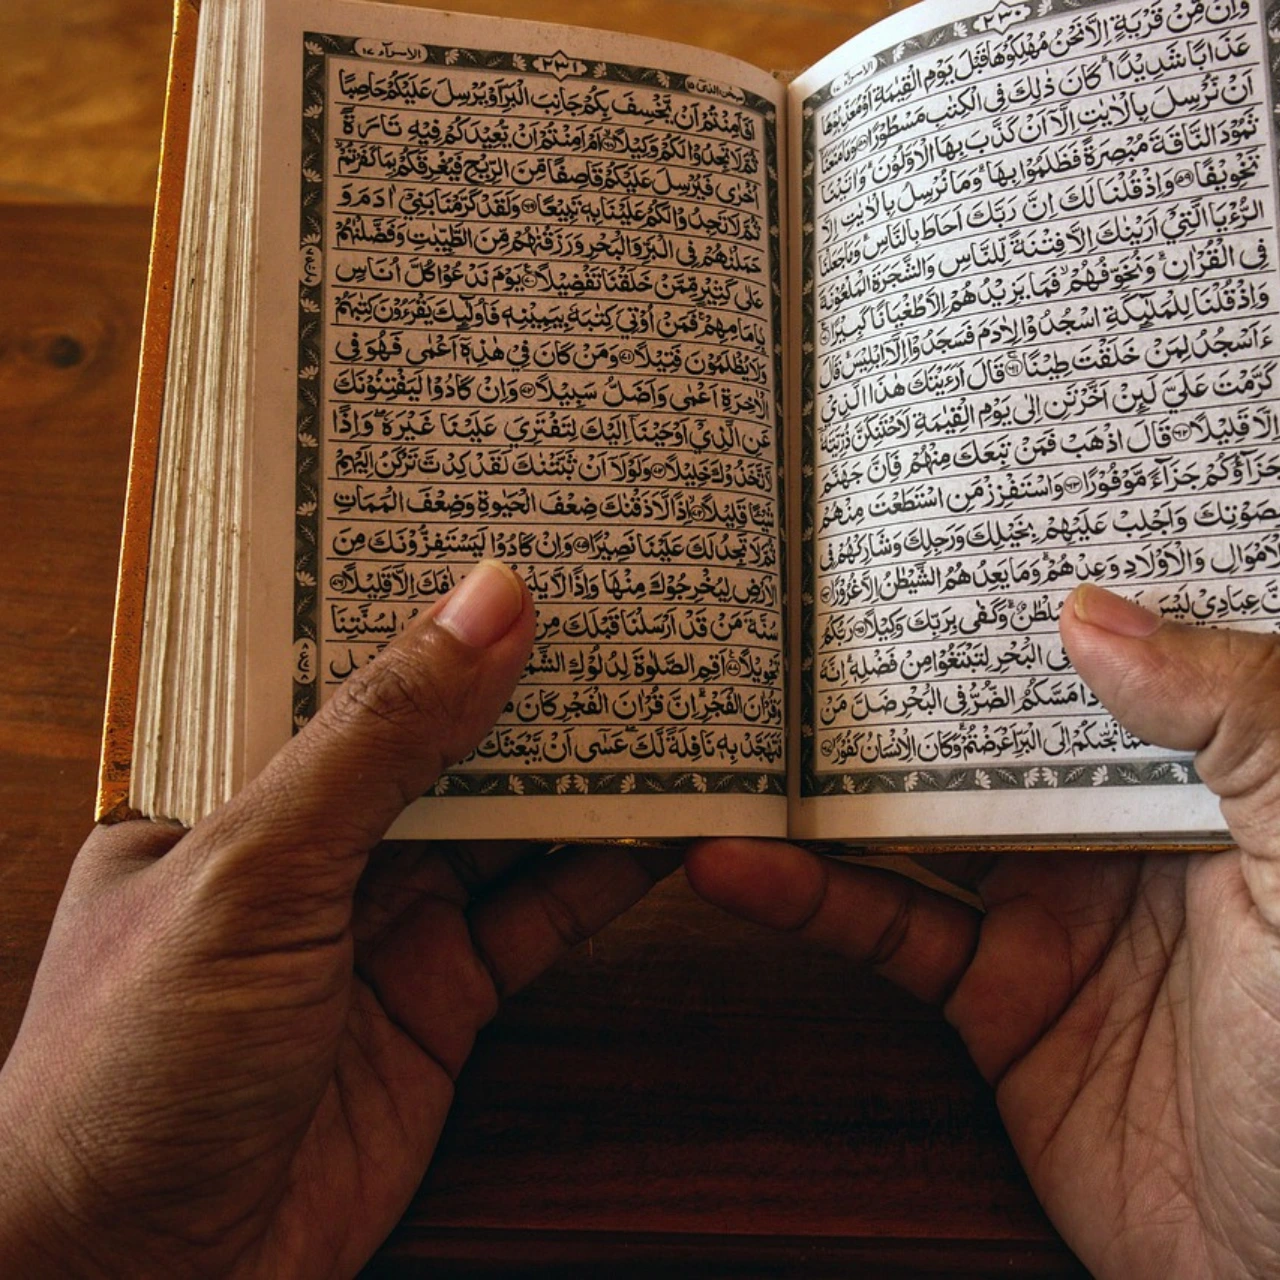 الاسرآء ١٧ ٢٣٠
وَاِنْ مِّنْ قَرْيَةٍ اِلَّا نَحْنُ مُهْلِكُوْهَا قَبْلَ يَوْمِ الْقِيٰمَةِ اَوْ مُعَذِّبُوْهَا
عَذَابًا شَدِيْدًا كَانَ ذٰلِكَ فِى الْكِتٰبِ مَسْطُوْرًا ﴿٥٨﴾ وَمَا مَنَعَنَآ
اَنْ نُّرْسِلَ بِالْاٰيٰتِ اِلَّآ اَنْ كَذَّبَ بِهَا الْاَوَّلُوْنَ وَاٰتَيْنَا
ثَمُوْدَ النَّاقَةَ مُبْصِرَةً فَظَلَمُوْا بِهَا وَمَا نُرْسِلُ بِالْاٰيٰتِ اِلَّا
تَخْوِيْفًا ﴿٥٩﴾ وَاِذْ قُلْنَا لَكَ اِنَّ رَبَّكَ اَحَاطَ بِالنَّاسِ وَمَا جَعَلْنَا
الرُّءْيَا الَّتِيْٓ اَرَيْنٰكَ اِلَّا فِتْنَةً لِّلنَّاسِ وَالشَّجَرَةَ الْمَلْعُوْنَةَ
فِى الْقُرْاٰنِ وَنُخَوِّفُهُمْ فَمَا يَزِيْدُهُمْ اِلَّا طُغْيَانًا كَبِيْرًا ﴿٦٠﴾
وَاِذْ قُلْنَا لِلْمَلٰٓئِكَةِ اسْجُدُوْا لِاٰدَمَ فَسَجَدُوْٓا اِلَّآ اِبْلِيْسَ قَالَ
ءَاَسْجُدُ لِمَنْ خَلَقْتَ طِيْنًا ﴿٦١﴾ قَالَ اَرَءَيْتَكَ هٰذَا الَّذِيْ
كَرَّمْتَ عَلَيَّ لَئِنْ اَخَّرْتَنِ اِلٰى يَوْمِ الْقِيٰمَةِ لَاَحْتَنِكَنَّ ذُرِّيَّتَهٗٓ
اِلَّا قَلِيْلًا ﴿٦٢﴾ قَالَ اذْهَبْ فَمَنْ تَبِعَكَ مِنْهُمْ فَاِنَّ جَهَنَّمَ
جَزَآؤُكُمْ جَزَآءً مَّوْفُوْرًا ﴿٦٣﴾ وَاسْتَفْزِزْ مَنِ اسْتَطَعْتَ مِنْهُمْ
بِصَوْتِكَ وَاَجْلِبْ عَلَيْهِمْ بِخَيْلِكَ وَرَجِلِكَ وَشَارِكْهُمْ فِى
الْاَمْوَالِ وَالْاَوْلَادِ وَعِدْهُمْ وَمَا يَعِدُهُمُ الشَّيْطٰنُ اِلَّا غُرُوْرًا ﴿٦٤﴾
اِنَّ عِبَادِيْ لَيْسَ سُلْطٰنٌ وَكَفٰى بِرَبِّكَ وَكِيْلًا ﴿٦٥﴾ رَبُّكُمُ
فِى الْبَحْرِ لِتَبْتَغُوْا مِنْ فَضْلِهٖ اِنَّهٗ
مَسَّكُمُ الضُّرُّ فِى الْبَحْرِ ضَلَّ مَنْ
نَجّٰىكُمْ اِلَى الْبَرِّ اَعْرَضْتُمْ وَكَانَ الْاِنْسَانُ كَفُوْرًا ﴿٦٧﴾
سبحن الذي ١٥ ٢٣١ الاسرآء ١٧
اَفَاَمِنْتُمْ اَنْ يَّخْسِفَ بِكُمْ جَانِبَ الْبَرِّ اَوْ يُرْسِلَ عَلَيْكُمْ حَاصِبًا
ثُمَّ لَا تَجِدُوْا لَكُمْ وَكِيْلًا ﴿٦٨﴾ اَمْ اَمِنْتُمْ اَنْ يُّعِيْدَكُمْ فِيْهِ تَارَةً
اُخْرٰى فَيُرْسِلَ عَلَيْكُمْ قَاصِفًا مِّنَ الرِّيْحِ فَيُغْرِقَكُمْ بِمَا كَفَرْتُمْ
ثُمَّ لَا تَجِدُوْا لَكُمْ عَلَيْنَا بِهٖ تَبِيْعًا ﴿٦٩﴾ وَلَقَدْ كَرَّمْنَا بَنِيْٓ اٰدَمَ وَ
حَمَلْنٰهُمْ فِى الْبَرِّ وَالْبَحْرِ وَرَزَقْنٰهُمْ مِّنَ الطَّيِّبٰتِ وَفَضَّلْنٰهُمْ
عَلٰى كَثِيْرٍ مِّمَّنْ خَلَقْنَا تَفْضِيْلًا ﴿٧٠﴾ يَوْمَ نَدْعُوْا كُلَّ اُنَاسٍ
بِاِمَامِهِمْ فَمَنْ اُوْتِيَ كِتٰبَهٗ بِيَمِيْنِهٖ فَاُولٰٓئِكَ يَقْرَءُوْنَ كِتٰبَهُمْ
وَلَا يُظْلَمُوْنَ فَتِيْلًا ﴿٧١﴾ وَمَنْ كَانَ فِيْ هٰذِهٖٓ اَعْمٰى فَهُوَ فِى
الْاٰخِرَةِ اَعْمٰى وَاَضَلُّ سَبِيْلًا ﴿٧٢﴾ وَاِنْ كَادُوْا لَيَفْتِنُوْنَكَ
عَنِ الَّذِيْٓ اَوْحَيْنَآ اِلَيْكَ لِتَفْتَرِيَ عَلَيْنَا غَيْرَهٗ وَاِذًا
لَّاتَّخَذُوْكَ خَلِيْلًا ﴿٧٣﴾ وَلَوْلَآ اَنْ ثَبَّتْنٰكَ لَقَدْ كِدْتَّ تَرْكَنُ اِلَيْهِمْ
شَيْئًا قَلِيْلًا ﴿٧٤﴾ اِذًا لَّاَذَقْنٰكَ ضِعْفَ الْحَيٰوةِ وَضِعْفَ الْمَمَاتِ
ثُمَّ لَا تَجِدُ لَكَ عَلَيْنَا نَصِيْرًا ﴿٧٥﴾ وَاِنْ كَادُوْا لَيَسْتَفِزُّوْنَكَ مِنَ
الْاَرْضِ لِيُخْرِجُوْكَ مِنْهَا وَاِذًا لَّا اِلَّا قَلِيْلًا ﴿٧٦﴾
سُنَّةَ مَنْ قَدْ اَرْسَلْنَا قَبْلَكَ مِنْ لِسُنَّتِنَا
تَحْوِيْلًا ﴿٧٧﴾ اَقِمِ الصَّلٰوةَ لِدُلُوْكِ
وَقُرْاٰنَ الْفَجْرِ اِنَّ قُرْاٰنَ الْفَجْرِ كَانَ
فَتَهَجَّدْ بِهٖ نَافِلَةً لَّكَ عَسٰٓى اَنْ يَّبْعَثَكَ